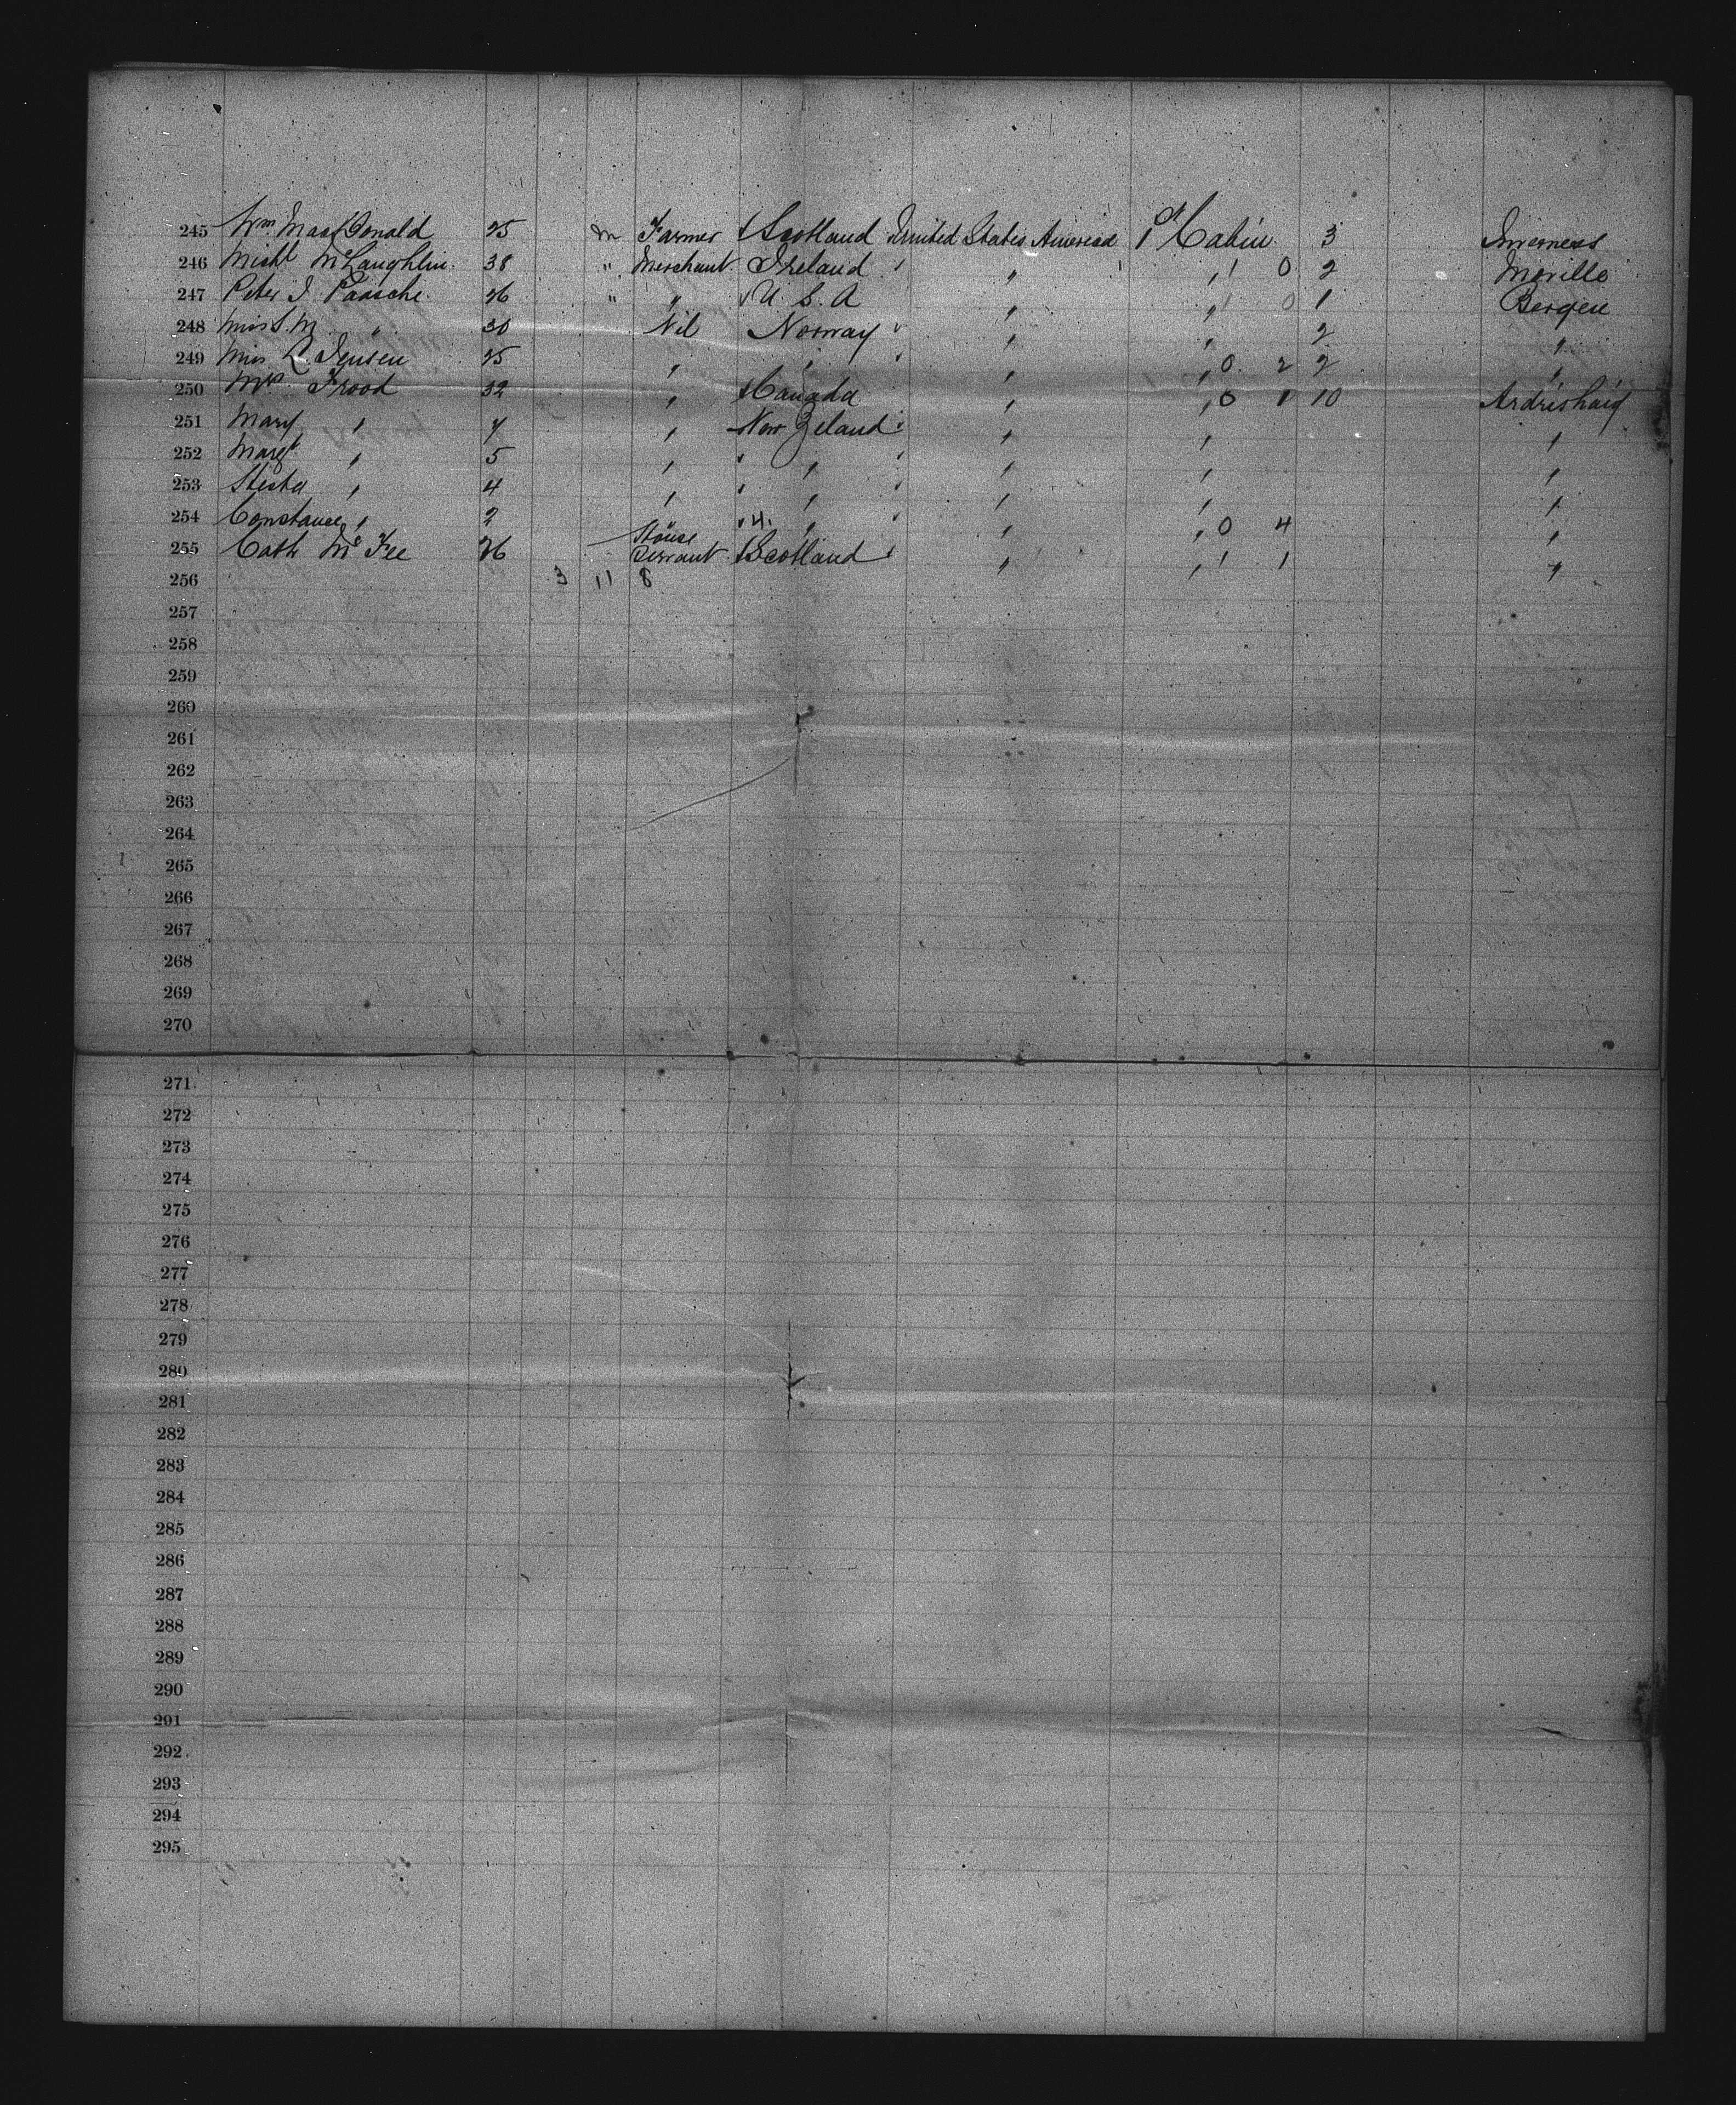 245 Wm. MacDonald 25 m Farmer Scotland United States America 1st Cabin 3 Inverness
246 Michl McLaughlin 38 " Merchant Ireland " " " 1 0 2 Moville
247 Peter J. Paasche 26 " " U. S. A " " 1 0 1 Bergen
248 Miss S. M. " 30 Nil Norway " " 2 "
249 Miss L. Jensen 25 " " " " 0 2 2 "
250 Mrs Frood 32 " Canada " " 0 1 10 Ardrishaig
251 Mary " 7 " New Zeland " " "
252 Margt " 5 " " " " "
253 " 4 " " " " "
254 Constance " 2 4. " " " 0 4 "
255 Cath McFee 26 House Servant Scotland " " 1 1 "
256 3 11 8
257
258
259
260
261
262
263
264
265
266
267
268
269
270
271
272
273
274
275
276
277
278
279
280
281
282
283
284
285
286
287
288
289
290
291
292
293
294
295